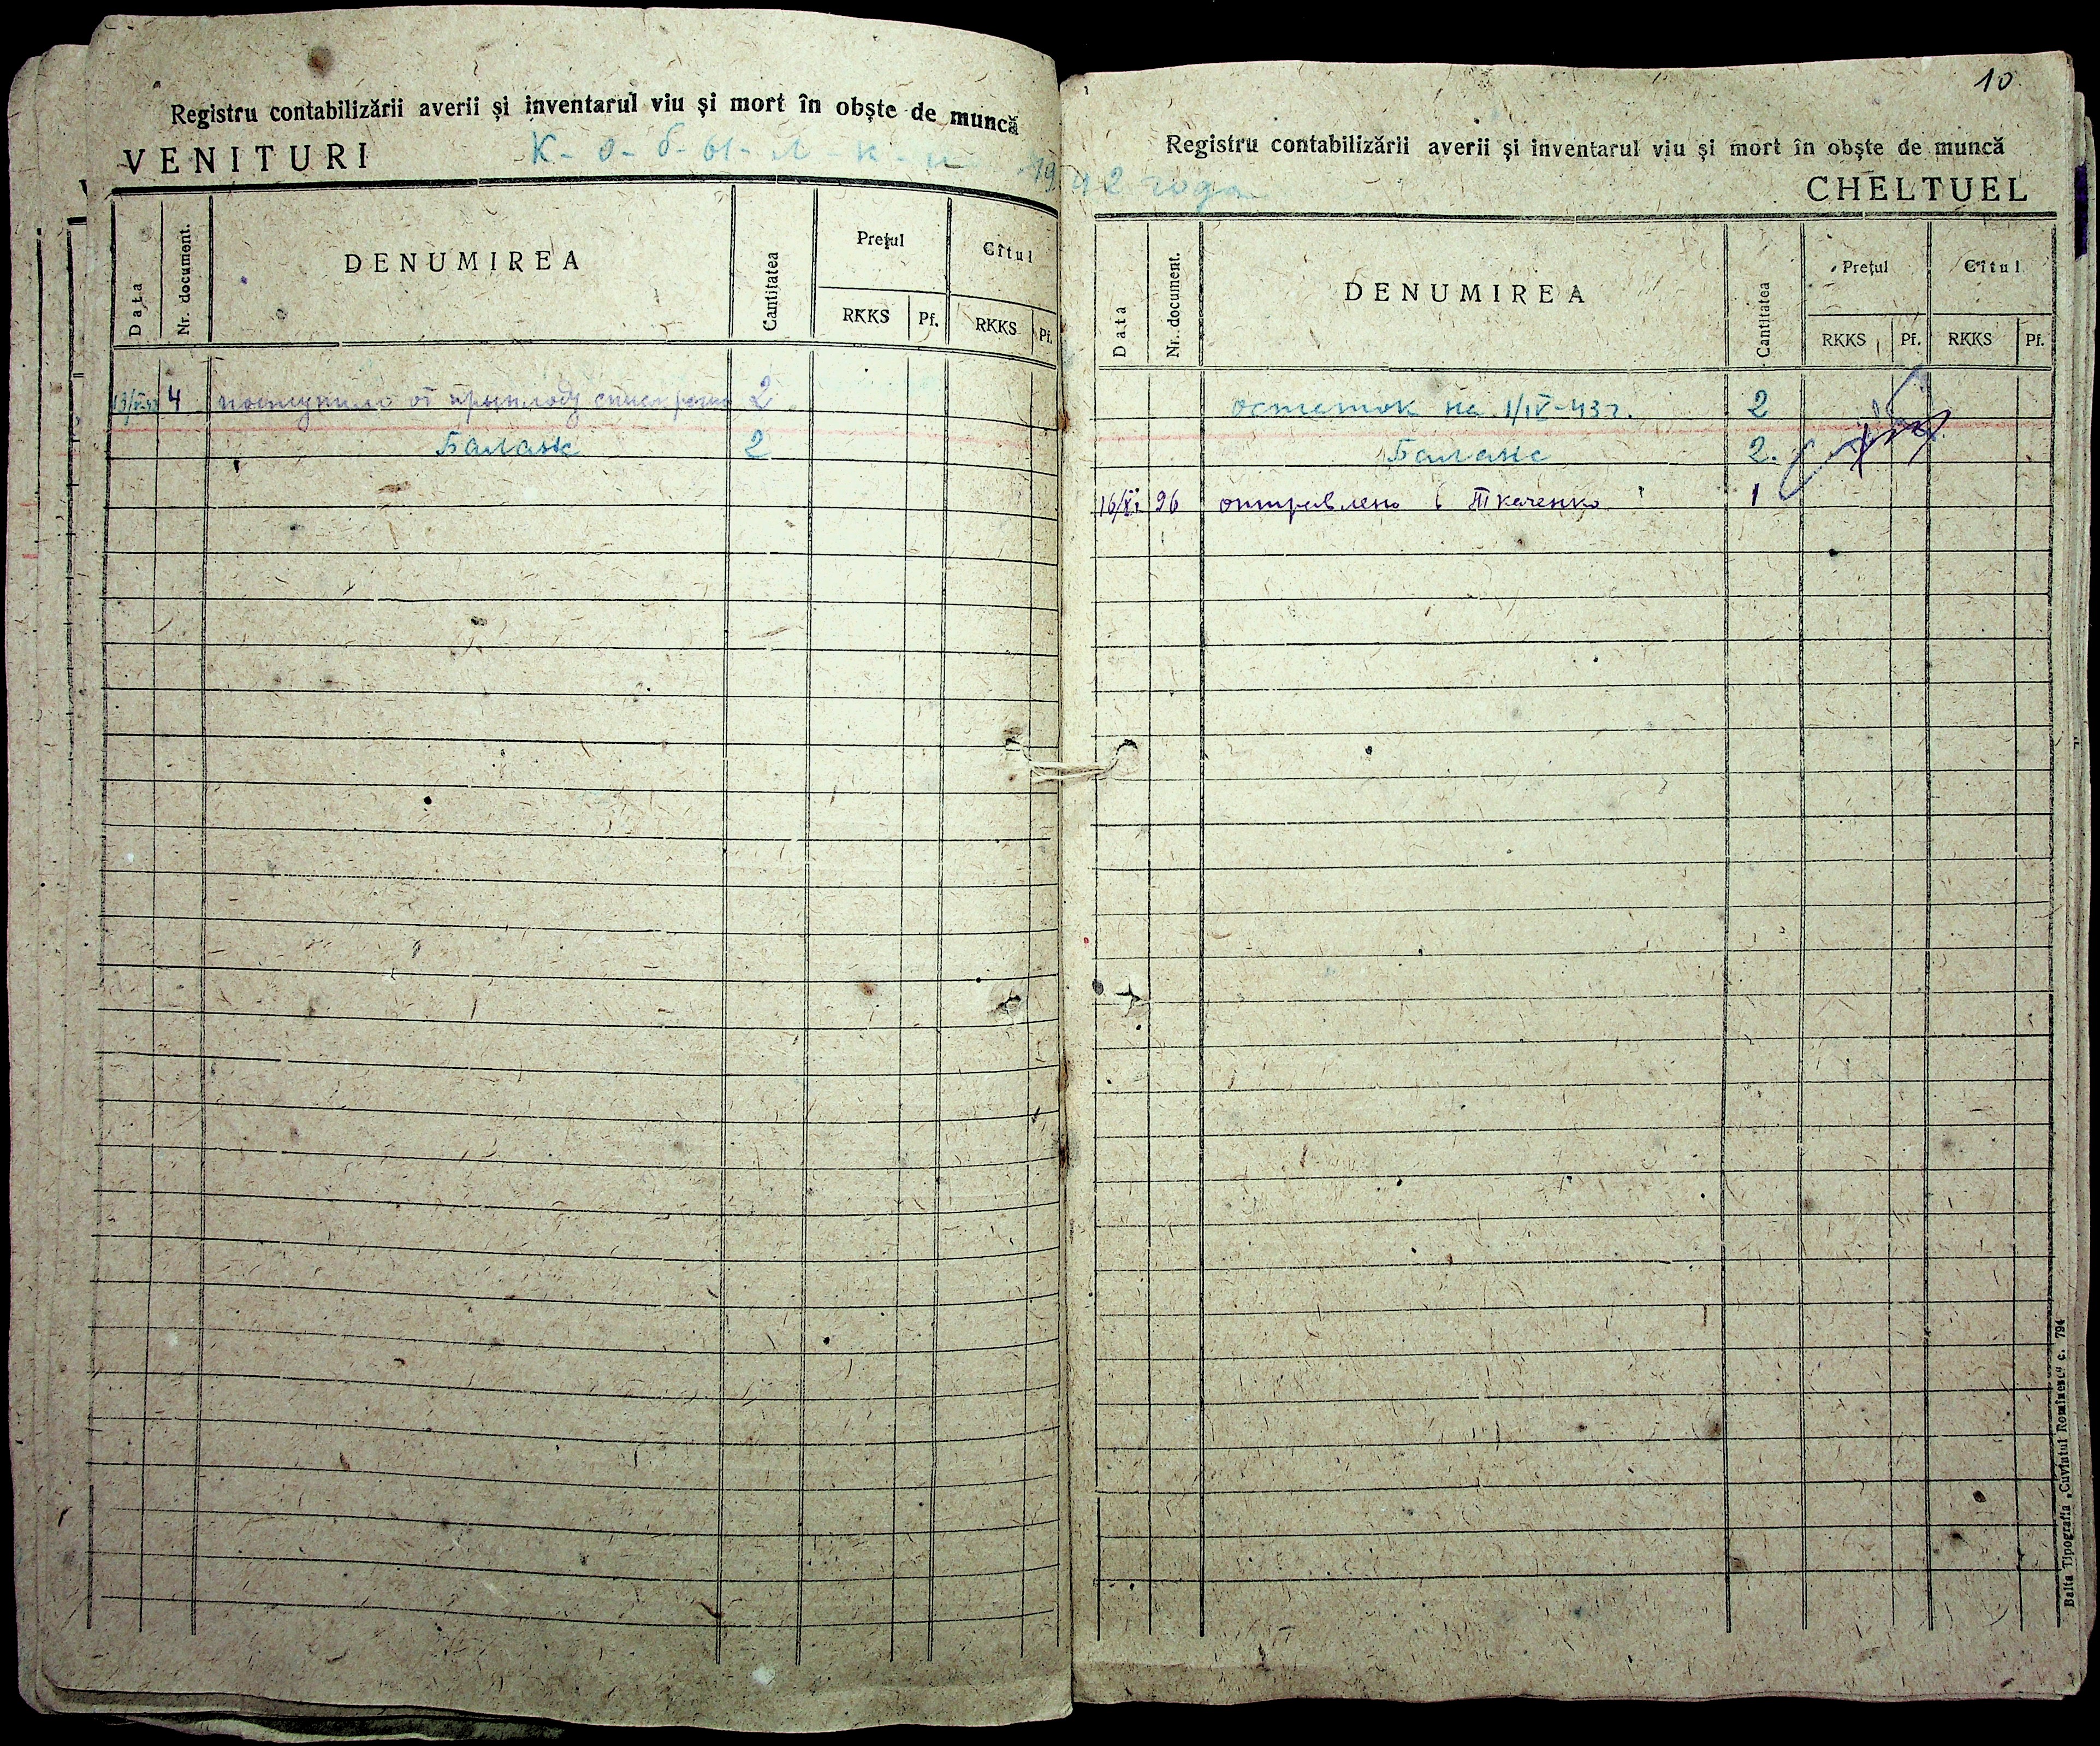 Registru contabilizării averii şi inventarul viu şi mort în obşte de muncă
VENITURI К-о-б-ы-л-к-и 1942 года
Data Nr. document. DENUMIREA Cantitatea Preţul Cîtul
RKKS Pf. RKKS Pf.
4 поступило от приплоду 2
Баланс 2
10
Registru contabilizării averii şi inventarul viu şi mort în obşte de muncă
CHELTUEL
Data Nr. document. DENUMIREA Cantitatea Preţul Cîtul
RKKS Pf. RKKS Pf.
остаток на 1/IV-43 г. 2
Баланс 2.
16/XI 96 отправлено в Ткаченко 1
Balta Tipografia „Cuvîntul Romînesc" c. 794